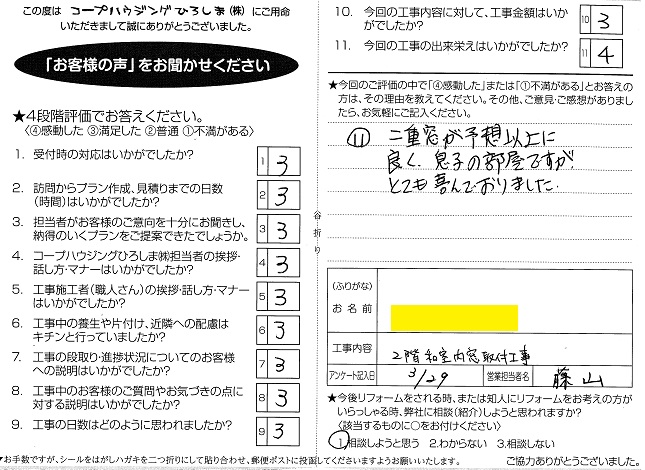 この度は コープハウジングひろしま㈱ にご用命
いただきまして誠にありがとうございました。
「お客様の声」をお聞かせください
★4段階評価でお答えください。
〈④感動した ③満足した ②普通 ①不満がある〉
1. 受付時の対応はいかがでしたか?
1 3
2. 訪問からプラン作成、見積りまでの日数
(時間)はいかがでしたか?
2 3
3. 担当者がお客様のご意向を十分にお聞きし、
納得のいくプランをご提案できたでしょうか。
3 3
4. コープハウジングひろしま㈱担当者の挨拶・
話し方・マナーはいかがでしたか?
4 3
5. 工事施工者(職人さん)の挨拶・話し方・マナー
はいかがでしたか?
5 3
6. 工事中の養生や片付け、近隣への配慮は
キチンと行っていましたか?
6 3
7. 工事の段取り・進捗状況についてのお客様
への説明はいかがでしたか?
7 3
8. 工事中のお客様のご質問やお気づきの点に
対する説明はいかがでしたか?
8 3
9. 工事の日数はどのように思われましたか?
9 3
▼お手数ですが、シールをはがしハガキを二つ折りにして貼り合わせ、郵便ポストに投函してくださいますようお願いいたします。
谷折り
10. 今回の工事内容に対して、工事金額はいか
がでしたか?
10 3
11. 今回の工事の出来栄えはいかがでしたか?
11 4
★今回のご評価の中で「④感動した」または「①不満がある」とお答え
の方は、その理由を教えてください。その他、ご意見・ご感想がありまし
たら、お気軽にご記入ください。
⑪ 二重窓が予想以上に
良く、息子の部屋ですが
とても喜んでおりました.
(ふりがな)
お名前
工事内容
2階和室内窓取付工事
アンケート記入日
3/29
営業担当者名
藤山
★今後リフォームをされる時、または知人にリフォームをお考えの方が
いらっしゃる時、弊社に相談(紹介)しようと思われますか?
〈該当するものに○をお付けください〉
1.相談しようと思う 2.わからない 3.相談しない
ご協力ありがとうございました。